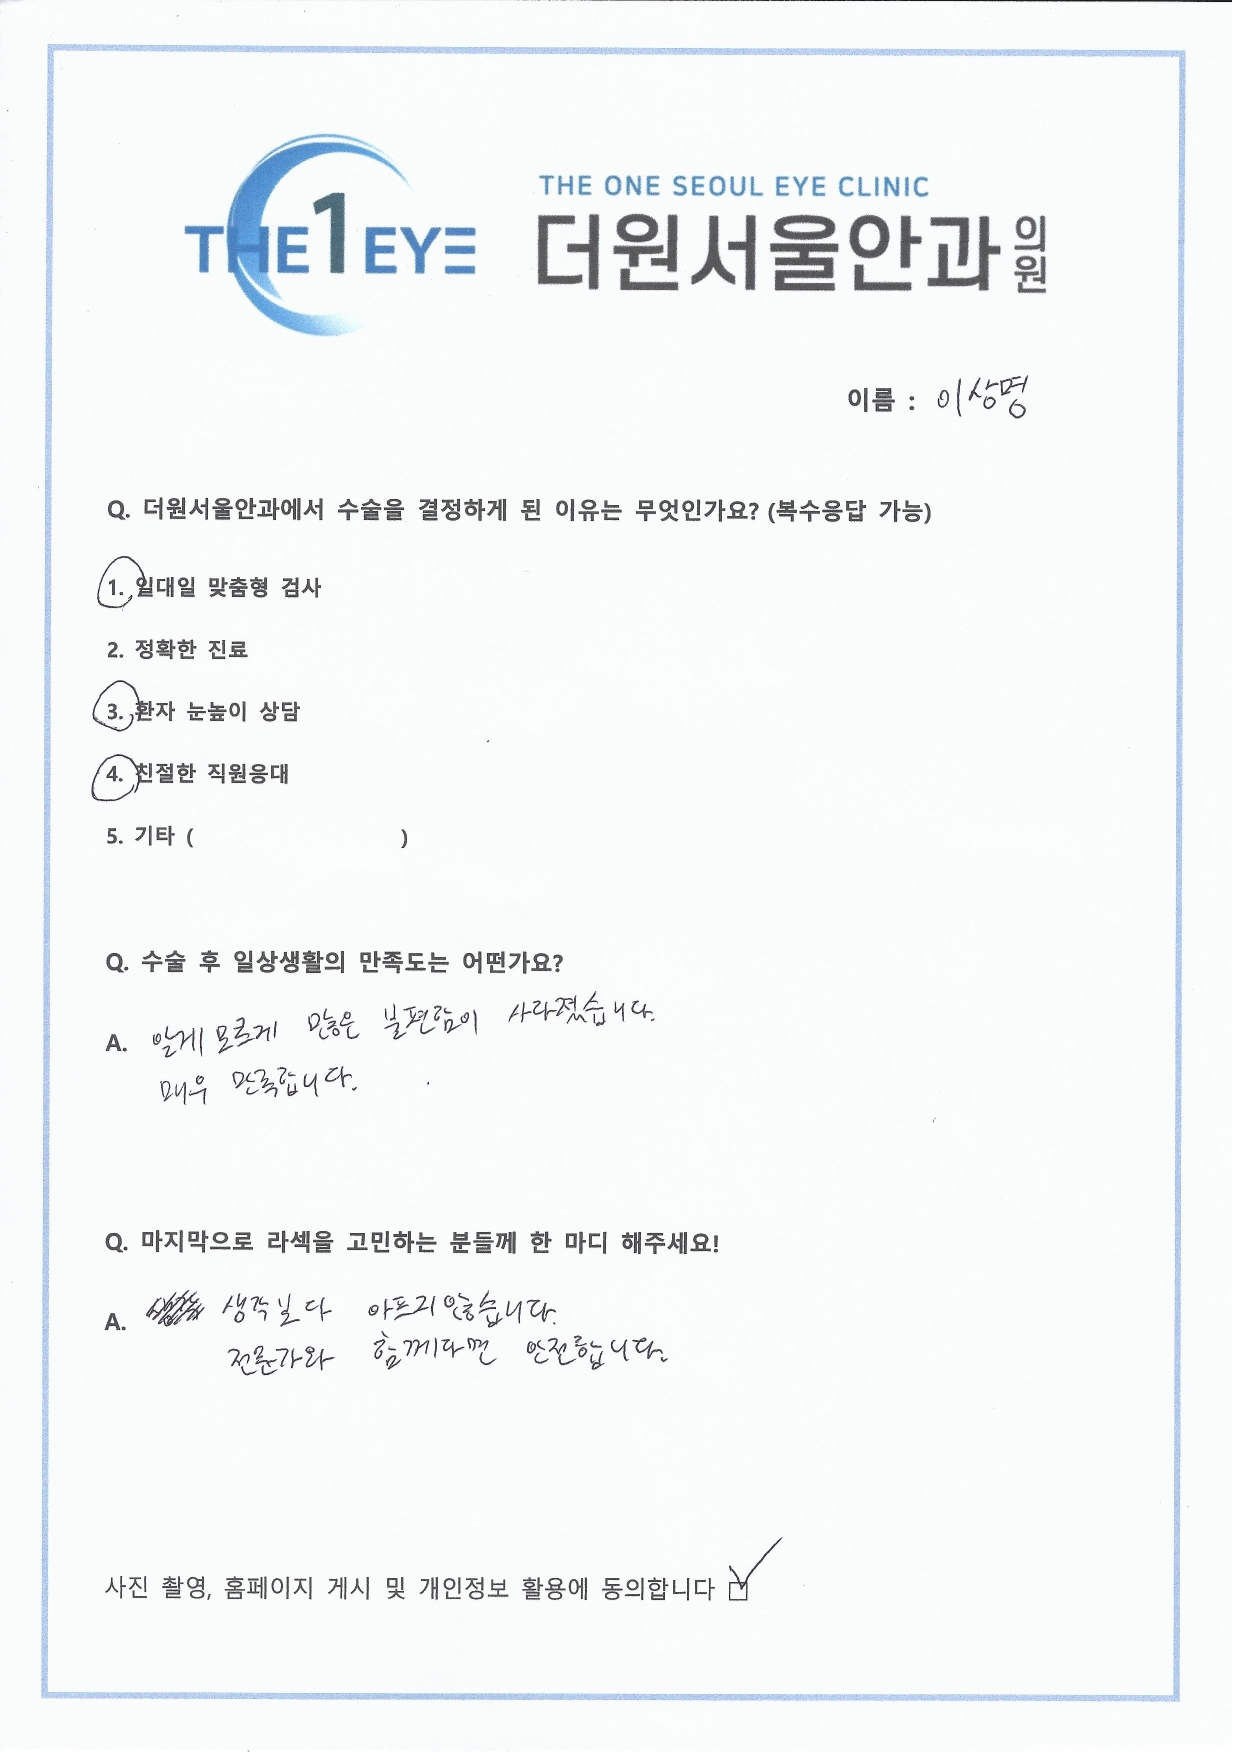 THE1EYE
THE ONE SEOUL EYE CLINIC
더원서울안과의원
이름 : 이상명
Q. 더원서울안과에서 수술을 결정하게 된 이유는 무엇인가요? (복수응답 가능)
1. 일대일 맞춤형 검사
2. 정확한 진료
3. 환자 눈높이 상담
4. 친절한 직원응대
5. 기타 ( )
Q. 수술 후 일상생활의 만족도는 어떤가요?
A. 알게모르게 많은 불편함이 사라졌습니다.
매우 만족합니다.
Q. 마지막으로 라섹을 고민하는 분들께 한 마디 해주세요!
A. 생각보다 아프지않습니다.
전문가와 함께라면 안전합니다.
사진 촬영, 홈페이지 게시 및 개인정보 활용에 동의합니다